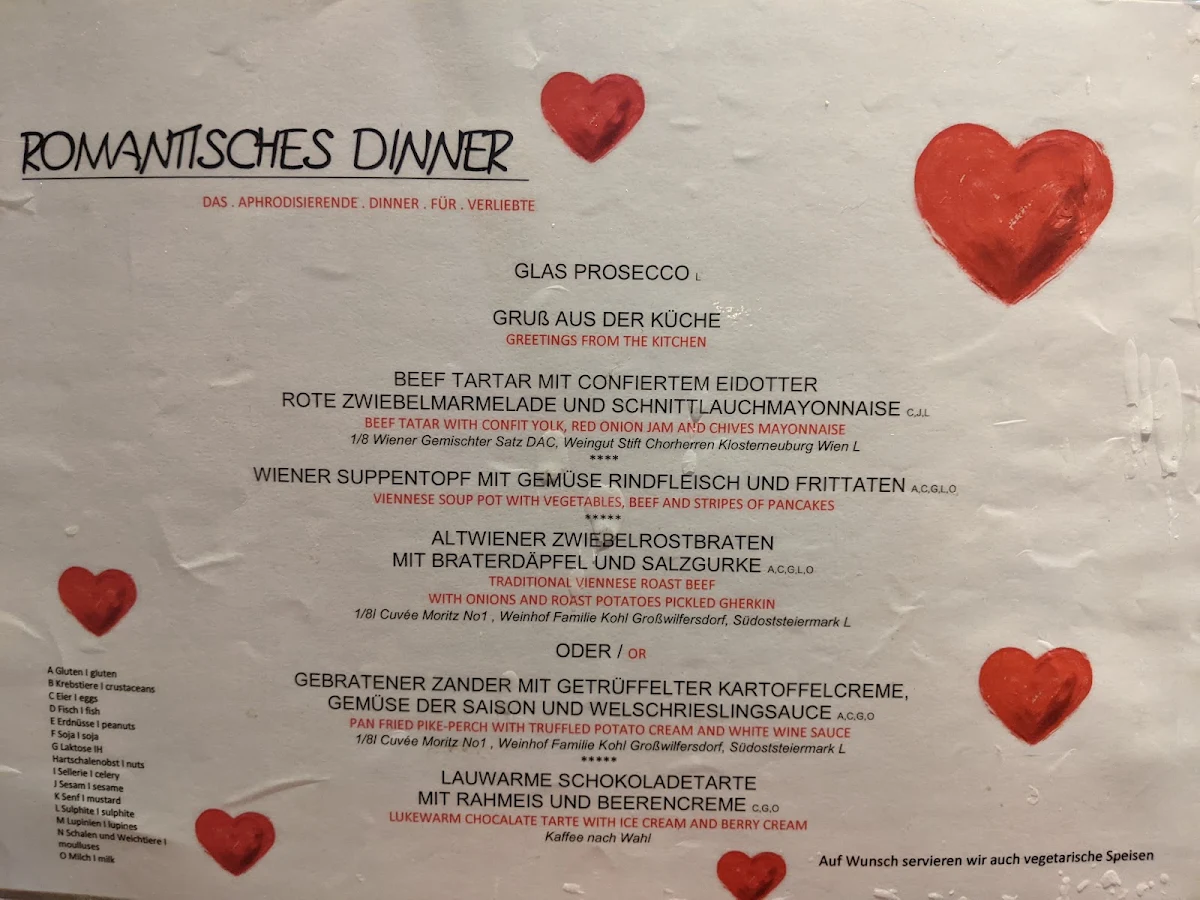 ROMANTISCHES DINNER
DAS . APHRODISIERENDE . DINNER . FÜR . VERLIEBTE
GLAS PROSECCO L
GRUß AUS DER KÜCHE
GREETINGS FROM THE KITCHEN
BEEF TARTAR MIT CONFIERTEM EIDOTTER
ROTE ZWIEBELMARMELADE UND SCHNITTLAUCHMAYONNAISE C,J,L
BEEF TATAR WITH CONFIT YOLK, RED ONION JAM AND CHIVES MAYONNAISE
1/8 Wiener Gemischter Satz DAC, Weingut Stift Chorherren Klosterneuburg Wien L
****
WIENER SUPPENTOPF MIT GEMÜSE RINDFLEISCH UND FRITTATEN A,C,G,L,O
VIENNESE SOUP POT WITH VEGETABLES, BEEF AND STRIPES OF PANCAKES
*****
ALTWIENER ZWIEBELROSTBRATEN
MIT BRATERDÄPFEL UND SALZGURKE A,C,G,L,O
TRADITIONAL VIENNESE ROAST BEEF
WITH ONIONS AND ROAST POTATOES PICKLED GHERKIN
1/8l Cuvée Moritz No1 , Weinhof Familie Kohl Großwilfersdorf, Südoststeiermark L
ODER / OR
GEBRATENER ZANDER MIT GETRÜFFELTER KARTOFFELCREME,
GEMÜSE DER SAISON UND WELSCHRIESLINGSAUCE A,C,G,O
PAN FRIED PIKE-PERCH WITH TRUFFLED POTATO CREAM AND WHITE WINE SAUCE
1/8l Cuvée Moritz No1 , Weinhof Familie Kohl Großwilfersdorf, Südoststeiermark L
*****
LAUWARME SCHOKOLADETARTE
MIT RAHMEIS UND BEERENCREME C,G,O
LUKEWARM CHOCALATE TARTE WITH ICE CREAM AND BERRY CREAM
Kaffee nach Wahl
A Gluten I gluten
B Krebstiere I crustaceans
C Eier I eggs
D Fisch I fish
E Erdnüsse I peanuts
F Soja I soja
G Laktose IH
Hartschalenobst I nuts
I Sellerie I celery
J Sesam I sesame
K Senf I mustard
L Sulphite I sulphite
M Lupinien I lupines
N Schalen und Weichtiere I
moulluses
O Milch I milk
Auf Wunsch servieren wir auch vegetarische Speisen